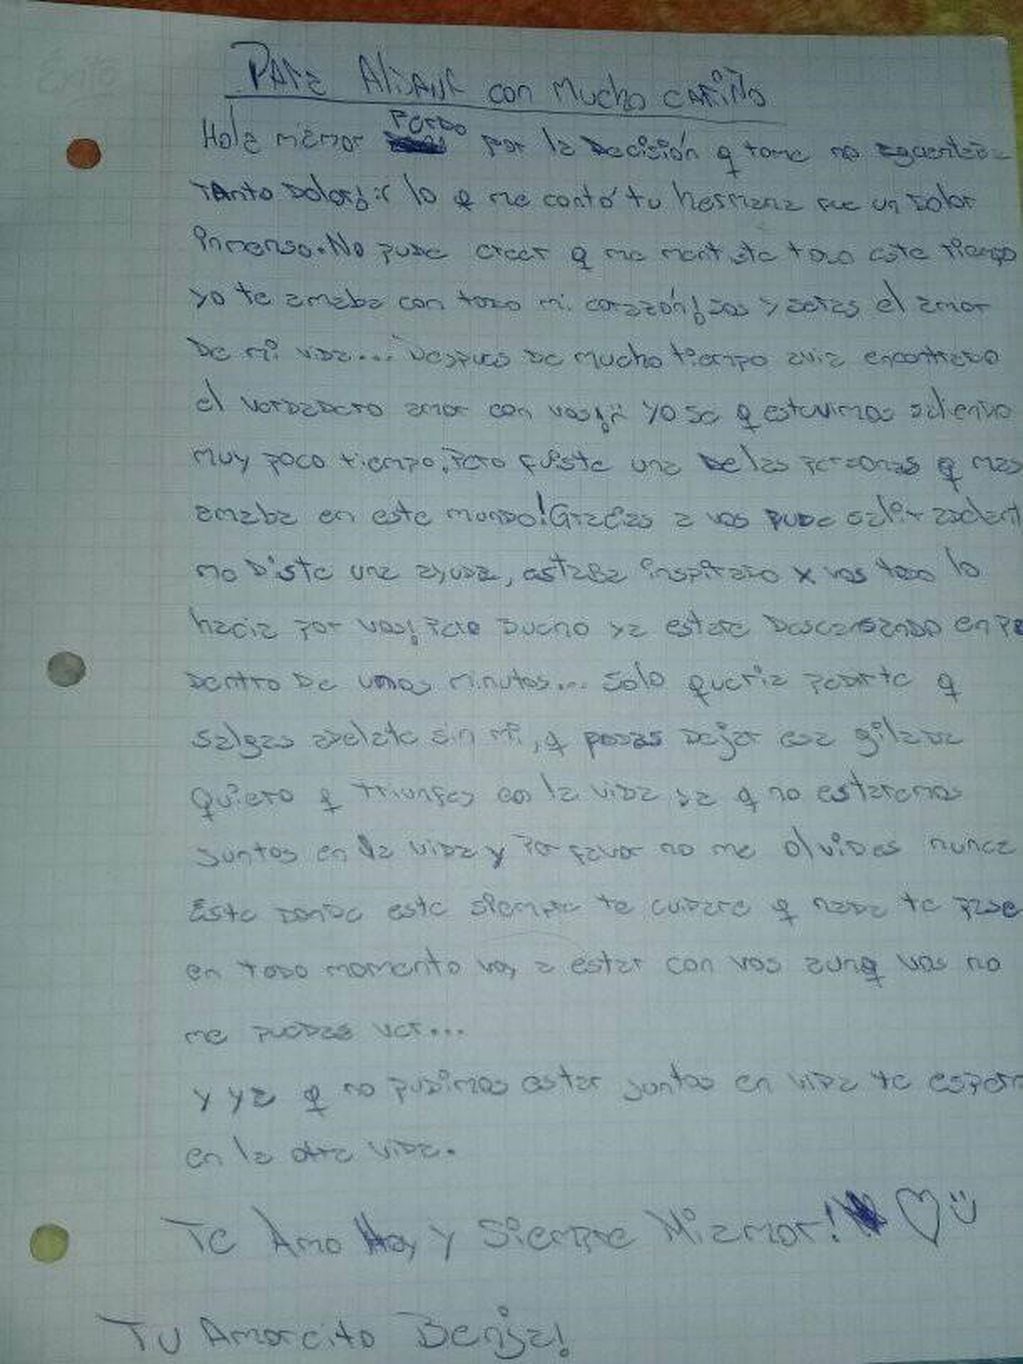 Para Aldana con mucho cariño
Hola miamor Perdo por la Decisión q tome no aguentaba
Tanto Dolor! :( lo q me contó tu hermana fue un dolor
inmenso. No pude creer q me mentiste todo este tiempo
yo te amaba con todo mi corazón! sos y seras el amor
De mi vida... Despues De mucho tiempo avia encontrado
el verdadero amor con vos! yo se q estuvimos saliendo
muy poco tiempo, Pero fuiste una De las personas q mas
amaba en este mundo! Gracias a vos pude salir adelant
me Diste una ayuda, estaba inspirado x vos todo lo
hacia por vos! Pero bueno ya estare Descansando en Pa
Dentro De unos minutos... Solo queria pedirte q
Salgas adelate sin mi, q puedas Dejar esa gilada
Quiero q triunfes en la vida ya q no estaremos
Juntos en la vida y Por favor no me olvides nunca
Este donde este siempre te cuidare q nada te pase
en todo momento voy a estar con vos aunq vos no
me puedas ver...
y ya q no pudimos estar juntos en vida te espero
en la otra vida.
Te Amo Hoy y Siempre Miamor! ♡ :)
Tu Amorcito Benja!